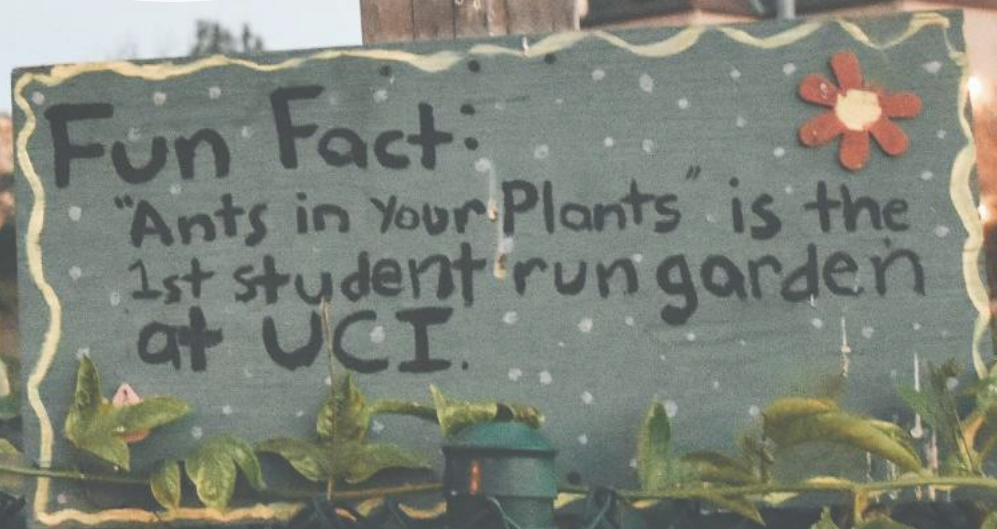 Fun Fact:
"Ants in Your Plants" is the
1st student run garden
at UCI.